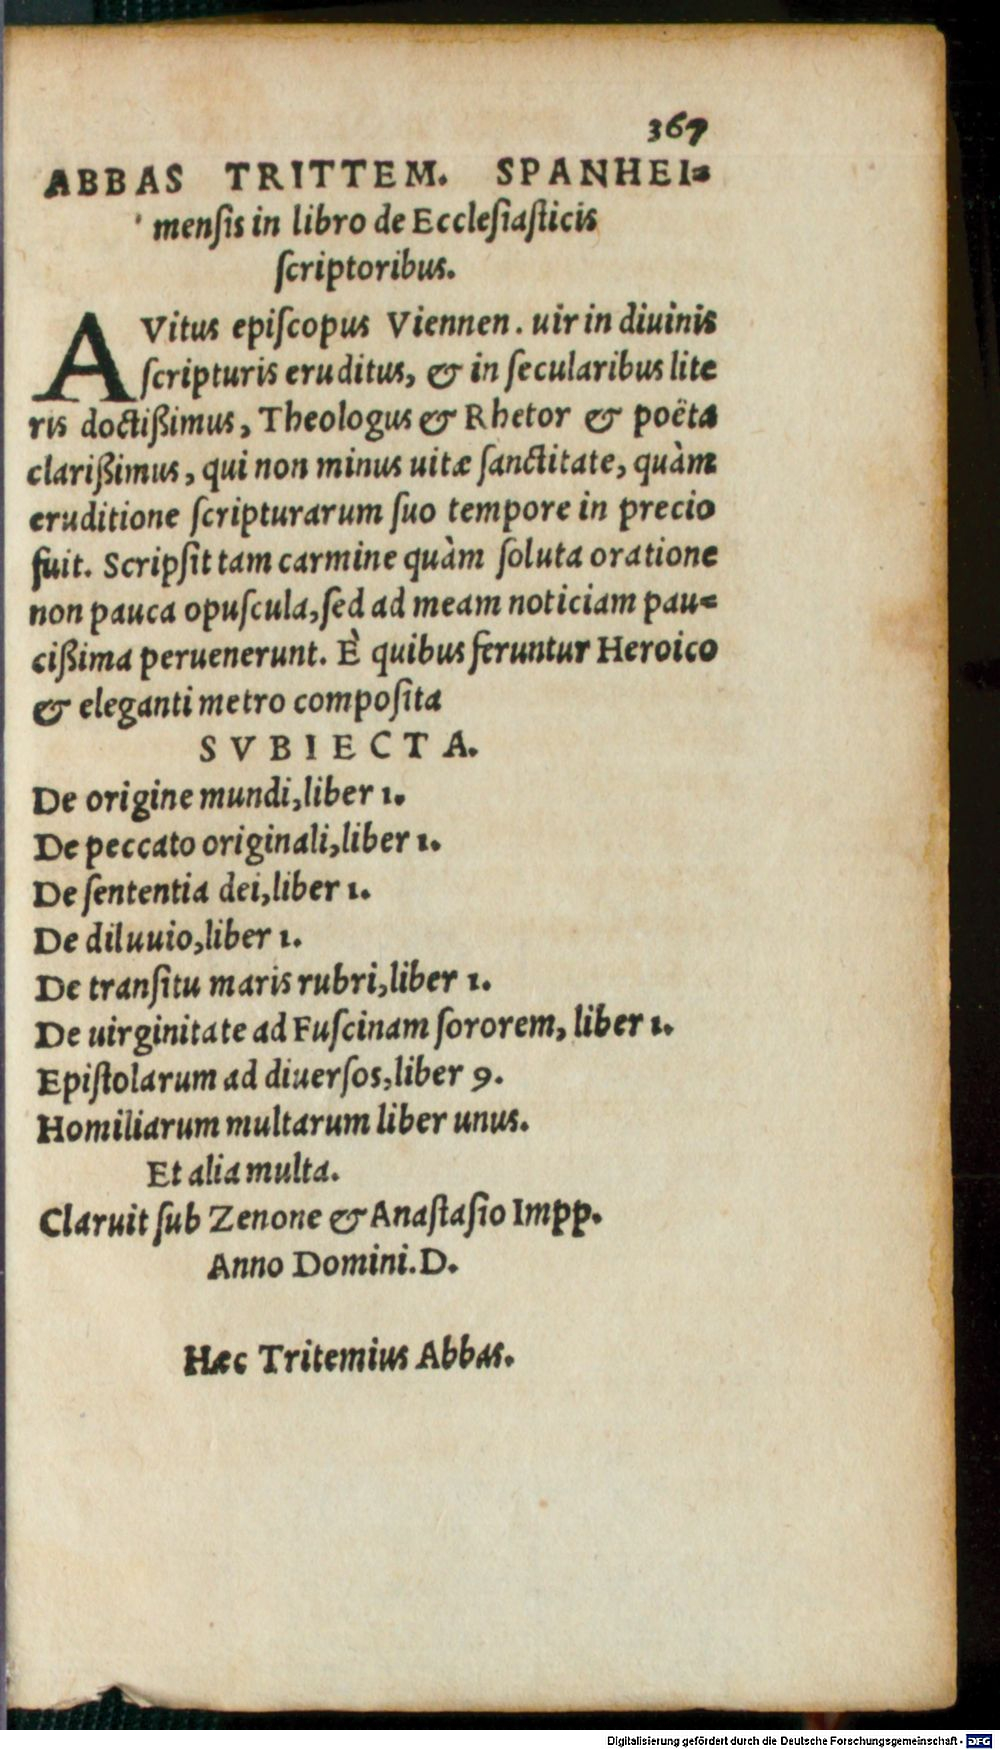 367
ABBAS TRITTEM. SPANHEI⸗
menſis in libro de Eccleſiaſticis
ſcriptoribus.
AVitus epiſcopus Viennen. uir in diuinis
ſcripturis eruditus, & in ſecularibus lite
ris doctißimus, Theologus & Rhetor & poëta
clarißimus, qui non minus uitæ ſanctitate, quàm
eruditione ſcripturarum ſuo tempore in precio
fuit. Scripſit tam carmine quàm ſoluta oratione
non pauca opuſcula, ſed ad meam noticiam pau⸗
cißima peruenerunt. È quibus feruntur Heroico
& eleganti metro compoſita
SVBIECTA.
De origine mundi, liber 1.
De peccato originali, liber 1.
De ſententia dei, liber 1.
De diluuio, liber 1.
De tranſitu maris rubri, liber 1.
De uirginitate ad Fuſcinam ſororem, liber 1.
Epiſtolarum ad diuerſos, liber 9.
Homiliarum multarum liber unus.
Et alia multa.
Claruit ſub Zenone & Anaſtaſio Impp.
Anno Domini. D.
Hæc Tritemius Abbas.
Digitalisierung gefördert durch die Deutsche Forschungsgemeinschaft - DFG